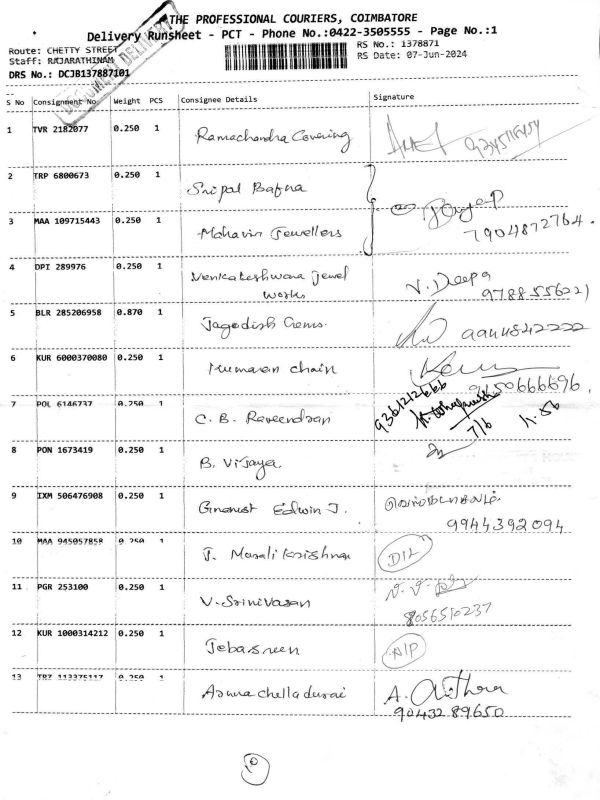 THE PROFESSIONAL COURIERS, COIMBATORE
Delivery Runsheet - PCT - Phone No.:0422-3505555 - Page No.:1
Route: CHETTY STREET
RS No.: 1378871
Staff: RAJARATHINAM
RS Date: 07-Jun-2024
DRS No.: DCJB137887101
S No Consignment No. Weight PCS Consignee Details Signature
1 TVR 2182077 0.250 1 Ramachandra Covering
2 TRP 6800673 0.250 1 Sripal Bafna
3 MAA 109715443 0.250 1 Mahavir Jewellers 7904872764.
4 DPI 289976 0.250 1 Venkateshwara Jewel V. Deepa
works 9788555622)
5 BLR 285206958 0.870 1 Jagadish Gems.
6 KUR 6000370080 0.250 1 chain 9150666696.
7 POL 6146737 0.250 1 C. B. Raveendran 9361212666 7/6
8 PON 1673419 0.250 1 B. Vijaya.
9 IXM 506476908 0.250 1 Edwin J. 9944392094
10 MAA 945057858 0.250 1 J. Murali Krishnan D/L
11 PGR 253100 0.250 1 V. Srinivasan 8056510237
12 KUR 1000314212 0.250 1 A/P
13 TRZ 113375117 0.250 1 Arunachelladurai A.
9043289650
10